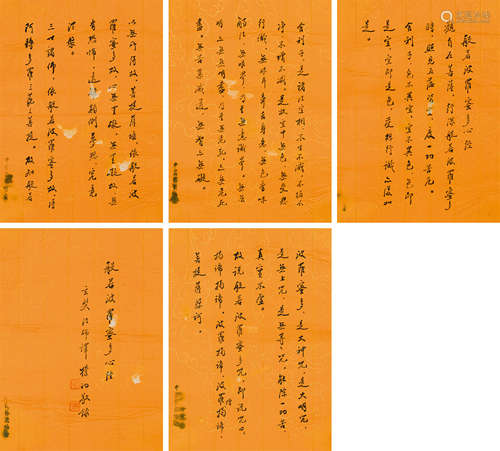 般若波羅蜜多心經
觀自在菩薩。行深般若波羅蜜多
時。照見五蘊皆空。度一切苦厄。
舍利子。色不異空。空不異色。色即
是空。空即是色。受想行識。亦復如
是。
舍利子。是諸法空相。不生不滅。不垢不
淨。不增不減。是故空中無色。無受想
行識。無眼耳鼻舌身意。無色聲香味
觸法。無眼界。乃至無意識界。無無
明。亦無無明盡。乃至無老死。亦無老死
盡。無苦集滅道。無智亦無得。
以無所得故。菩提薩埵。依般若波
羅蜜多故。心無罣礙。無罣礙故。無
有恐怖。遠離顛倒夢想。究竟
涅槃。
三世諸佛。依般若波羅蜜多故。得
阿耨多羅三藐三菩提。故知般若
波羅蜜多。是大神咒。是大明咒。
是無上咒。是無等等咒。能除一切苦。
真實不虛。
故說般若波羅蜜多咒。即說咒曰。
揭諦揭諦。波羅揭諦。波羅僧揭諦。
菩提薩婆訶。
般若波羅蜜多心經
玄奘法師譯 樸初敬錄